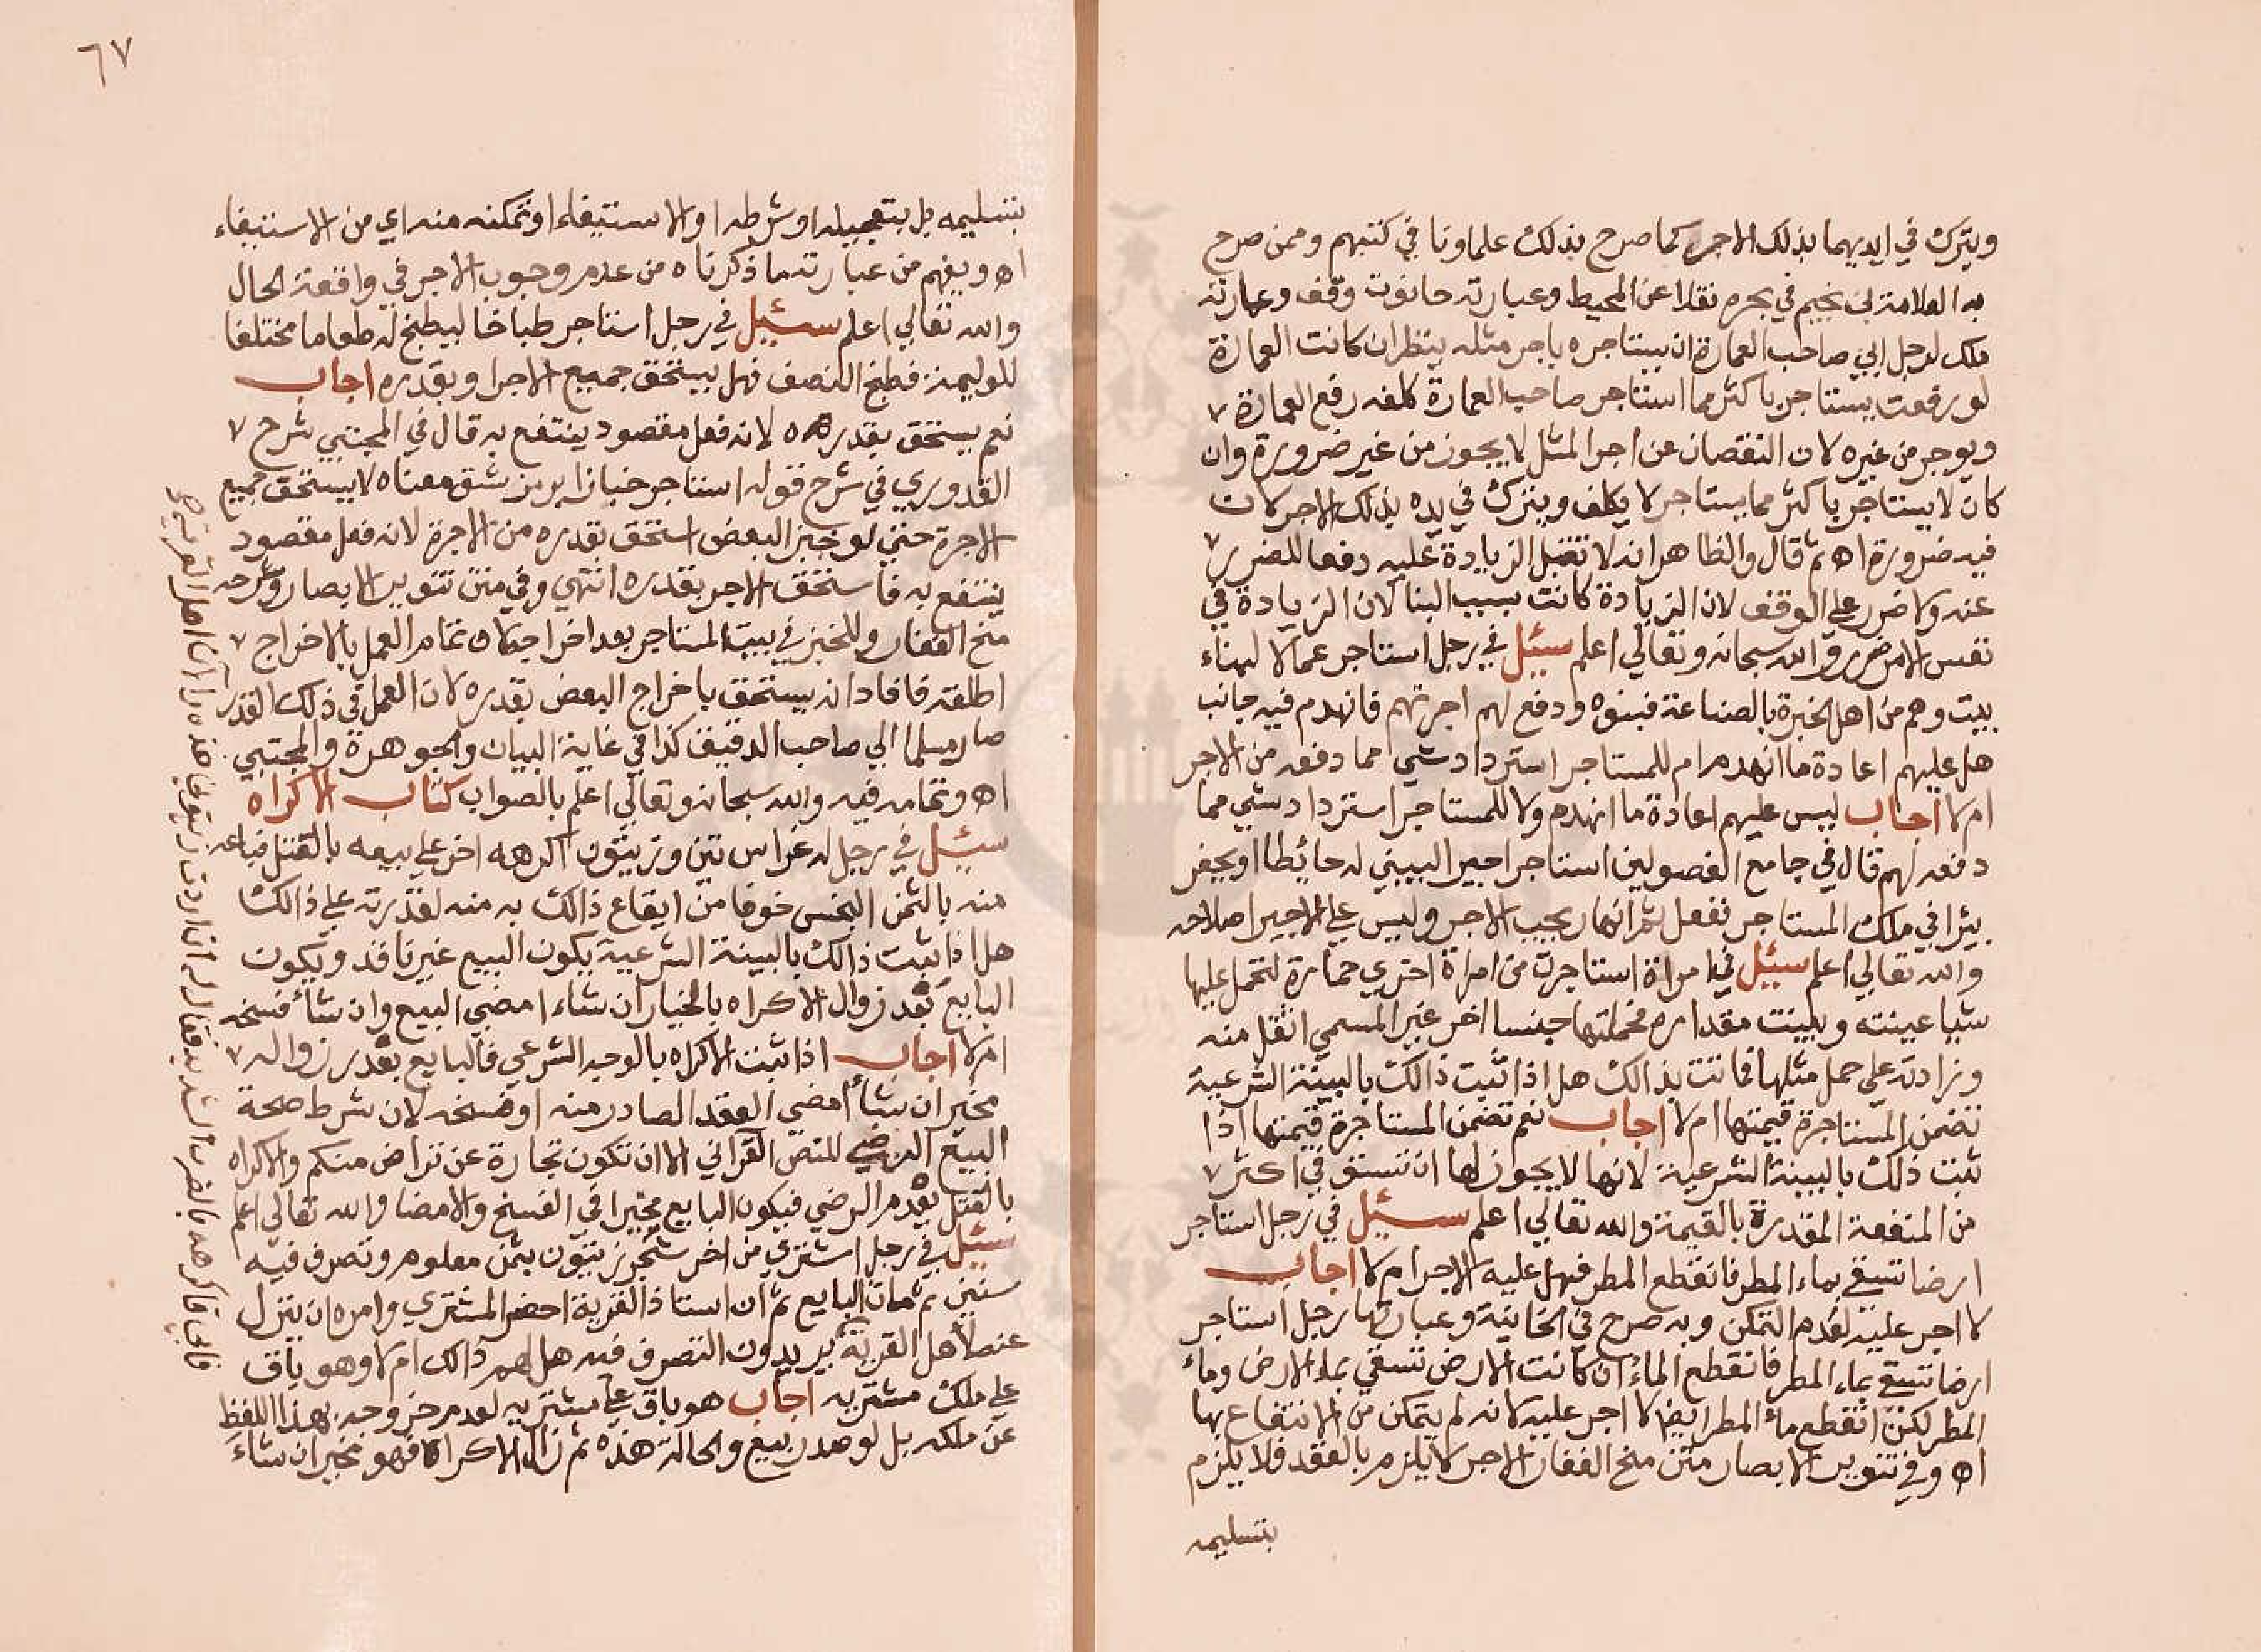 ويترك في ايديهما بذلك الاجر كما صرح بذلك علماونا في كتبهم وممن صرح
به العلامة بن نجيم في بحره نقلا عن المحيط وعبارته حانوت وقف وعمارته
ملك لرجل ابي صاحب العمارة ان يستاجره باجر مثله ينظر ان كانت العمارة
لو رفعت يستاجر باكثر مما استاجر صاحب العمارة كلفه رفع العمارة
ويوجر من غيره لان النقصان عن اجر المثل لا يجوز من غير ضرورة وان
كان لا يستاجر باكثر مما يستاجر لا يكلف ويترك في يده بذلك الاجر لان
فيه ضرورة اه ثم قال والظاهر انه لا تقبل الزيادة عليه دفعا للضرر
عنه ولا ضرر علي الوقف لان الزيادة كانت بسبب البنا لان الزيادة في
نفس الامر والله سبحانه وتعالي اعلم سئيل في رجل استاجر عمالا لبناء
بيت وهم من اهل الخبرة بالصناعة فبنوه ودفع لهم اجرتهم فانهدم فيه جانب
هل عليهم اعادة ما انهدم ام للمستاجر استرداد شي مما دفعه من الاجر
ام لا اجاب ليس عليهم اعادة ما انهدم ولا للمستاجر استرداد شي مما
دفعه لهم قال في جامع الفصولين استاجر اجيرا ليبني له حائطا او يحفر
بيرا في ملك المستاجر ففعل ثم انهار يجب الاجر وليس علي الاجير اصلاحه
والله تعالي اعلم سئيل في امراة استاجرت من امراة اخري حمارة لتحمل عليها
شيا عينته وبينت مقداره فحملتها جنسا اخر غير المسمي اثقل منه
وزادته علي حمل مثلها فماتت بذالك هل اذا ثبت ذالك بالبينة الشرعية
تضمن المستاجرة قيمتها ام لا اجاب نعم تضمن المستاجرة قيمتها اذا
ثبت ذلك بالبينة الشرعية لانها لا يجوز لها ان تستوفي اكثر
من المنفعة المقدرة بالقيمة والله تعالي اعلم سئيل في رجل استاجر
ارضا تسقي بماء المطر فانقطع المطر فهل عليه الاجر ام لا اجاب
لا اجر عليه لعدم التمكن وبه صرح في الخانية وعبارتها رجل استاجر
ارضا تسقي بماء المطر فانقطع الماء ان كانت الارض تسقي بماء الارض وماء
المطر لكن انقطع ماء المطر ايضا لا اجر عليه لانه لم يتمكن من الانتفاع بها
اه وفي تنوير الابصار متن منح الغفار الاجر لا يلزم بالعقد فلا يلزم
بتسليمه
٦٧
بتسليمه بل بتعجيله او شرطه او الاستيفاء او تمكنه منه اي من الاستيفاء
اه ويفهم من عبارته ما ذكرناه من عدم وجوب الاجر في واقعة الحال
والله تعالي اعلم سئيل في رجل استاجر طباخا ليطبخ له طعاما مختلفا
للوليمة فطبخ النصف فهل يستحق جميع الاجر او بقدره اجاب
نعم يستحق بقدره لانه فعل مقصود ينتفع به قال في المجتبي شرح
القدوري في شرح قوله استاجر خبازا معناه لا يستحق جميع
الاجرة حتي لو خبز البعض استحق بقدره من الاجرة لانه فعل مقصود
ينتفع به فاستحق الاجر بقدره انتهي وفي متن تنوير الابصار وشرحه
منح الغفار وللخبز في بيت المستاجر بعد اخراجه لان تمام العمل بالاخراج
اطلقه فافاد انه يستحق باخراج البعض بقدره لان العمل في ذلك القدر
صار مسلما الي صاحب الدقيق كذا في غاية البيان والجوهرة والمجتبي
اه وتمامه فيه والله سبحانه وتعالي اعلم بالصواب كتاب الاكراه
سئيل في رجل له غراس تين وزيتون اكرهه اخر علي بيعه بالقتل فباعه
منه بالثمن البخس خوفا من ايقاع ذالك به منه لقدرته علي ذالك
هل اذا ثبت ذالك بالبينة الشرعية يكون البيع غير نافذ ويكون
البايع بعد زوال الاكراه بالخيار ان شاء امضي البيع وان شاء فسخه
ام لا اجاب اذا ثبت الاكراه بالوجه الشرعي فالبايع بعد زواله
مخير ان شاء امضي العقد الصادر منه او فسخه لان شرط صحة
البيع الرضي للنص القراني الا ان تكون تجارة عن تراض منكم والاكراه
بالقتل يعدم الرضي فيكون البايع مخيرا في الفسخ والامضا والله تعالي اعلم
سئيل في رجل اشتري من اخر شجر زيتون بثمن معلوم وتصرف فيه
سنين ثم مات البايع ثم ان استاذ القرية احضر المشتري وامره ان ينزل
عنه لأهل القرية يريدون التصرف فيه هل لهم ذالك ام لا وهو باق
علي ملك مشتريه اجاب هو باق علي مشتريه لعدم خروجه بهذا اللفظ
عن ملكه بل لو صدر بيع والحالة هذه ثم زال الاكراه فهو مخير ان شاء